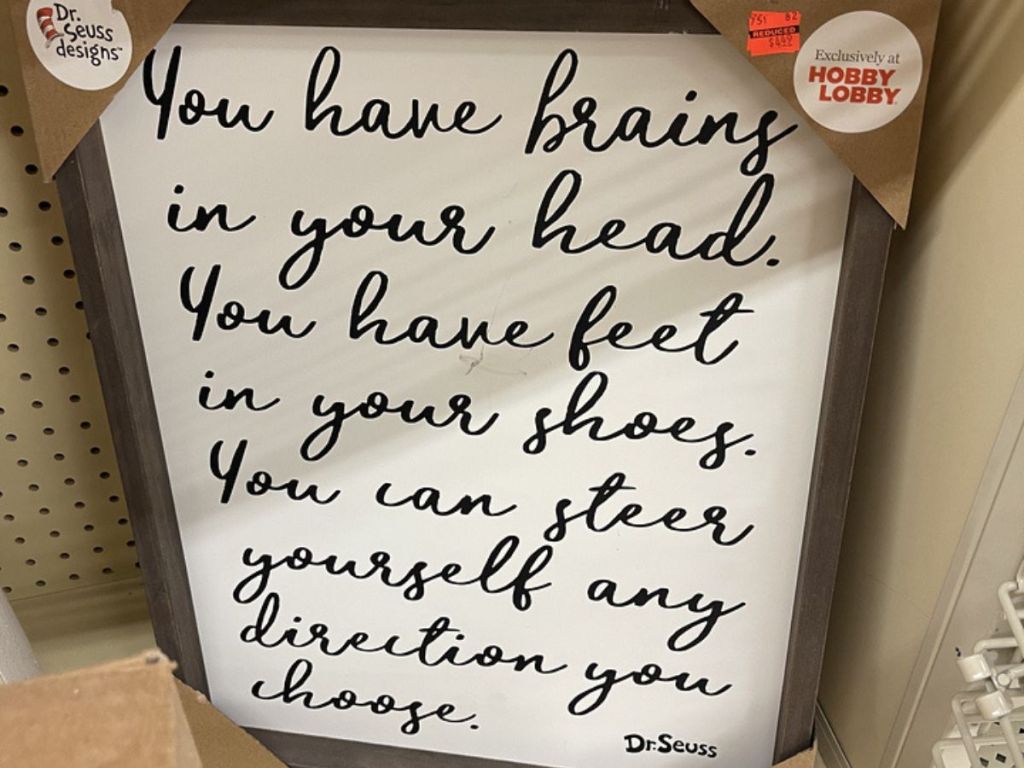 Dr.
Seuss
designs™
951 82
REDUCED
Exclusively at
HOBBY
LOBBY
You have brains
in your head.
You have feet
in your shoes.
You can steer
yourself any
direction you
choose.
Dr. Seuss